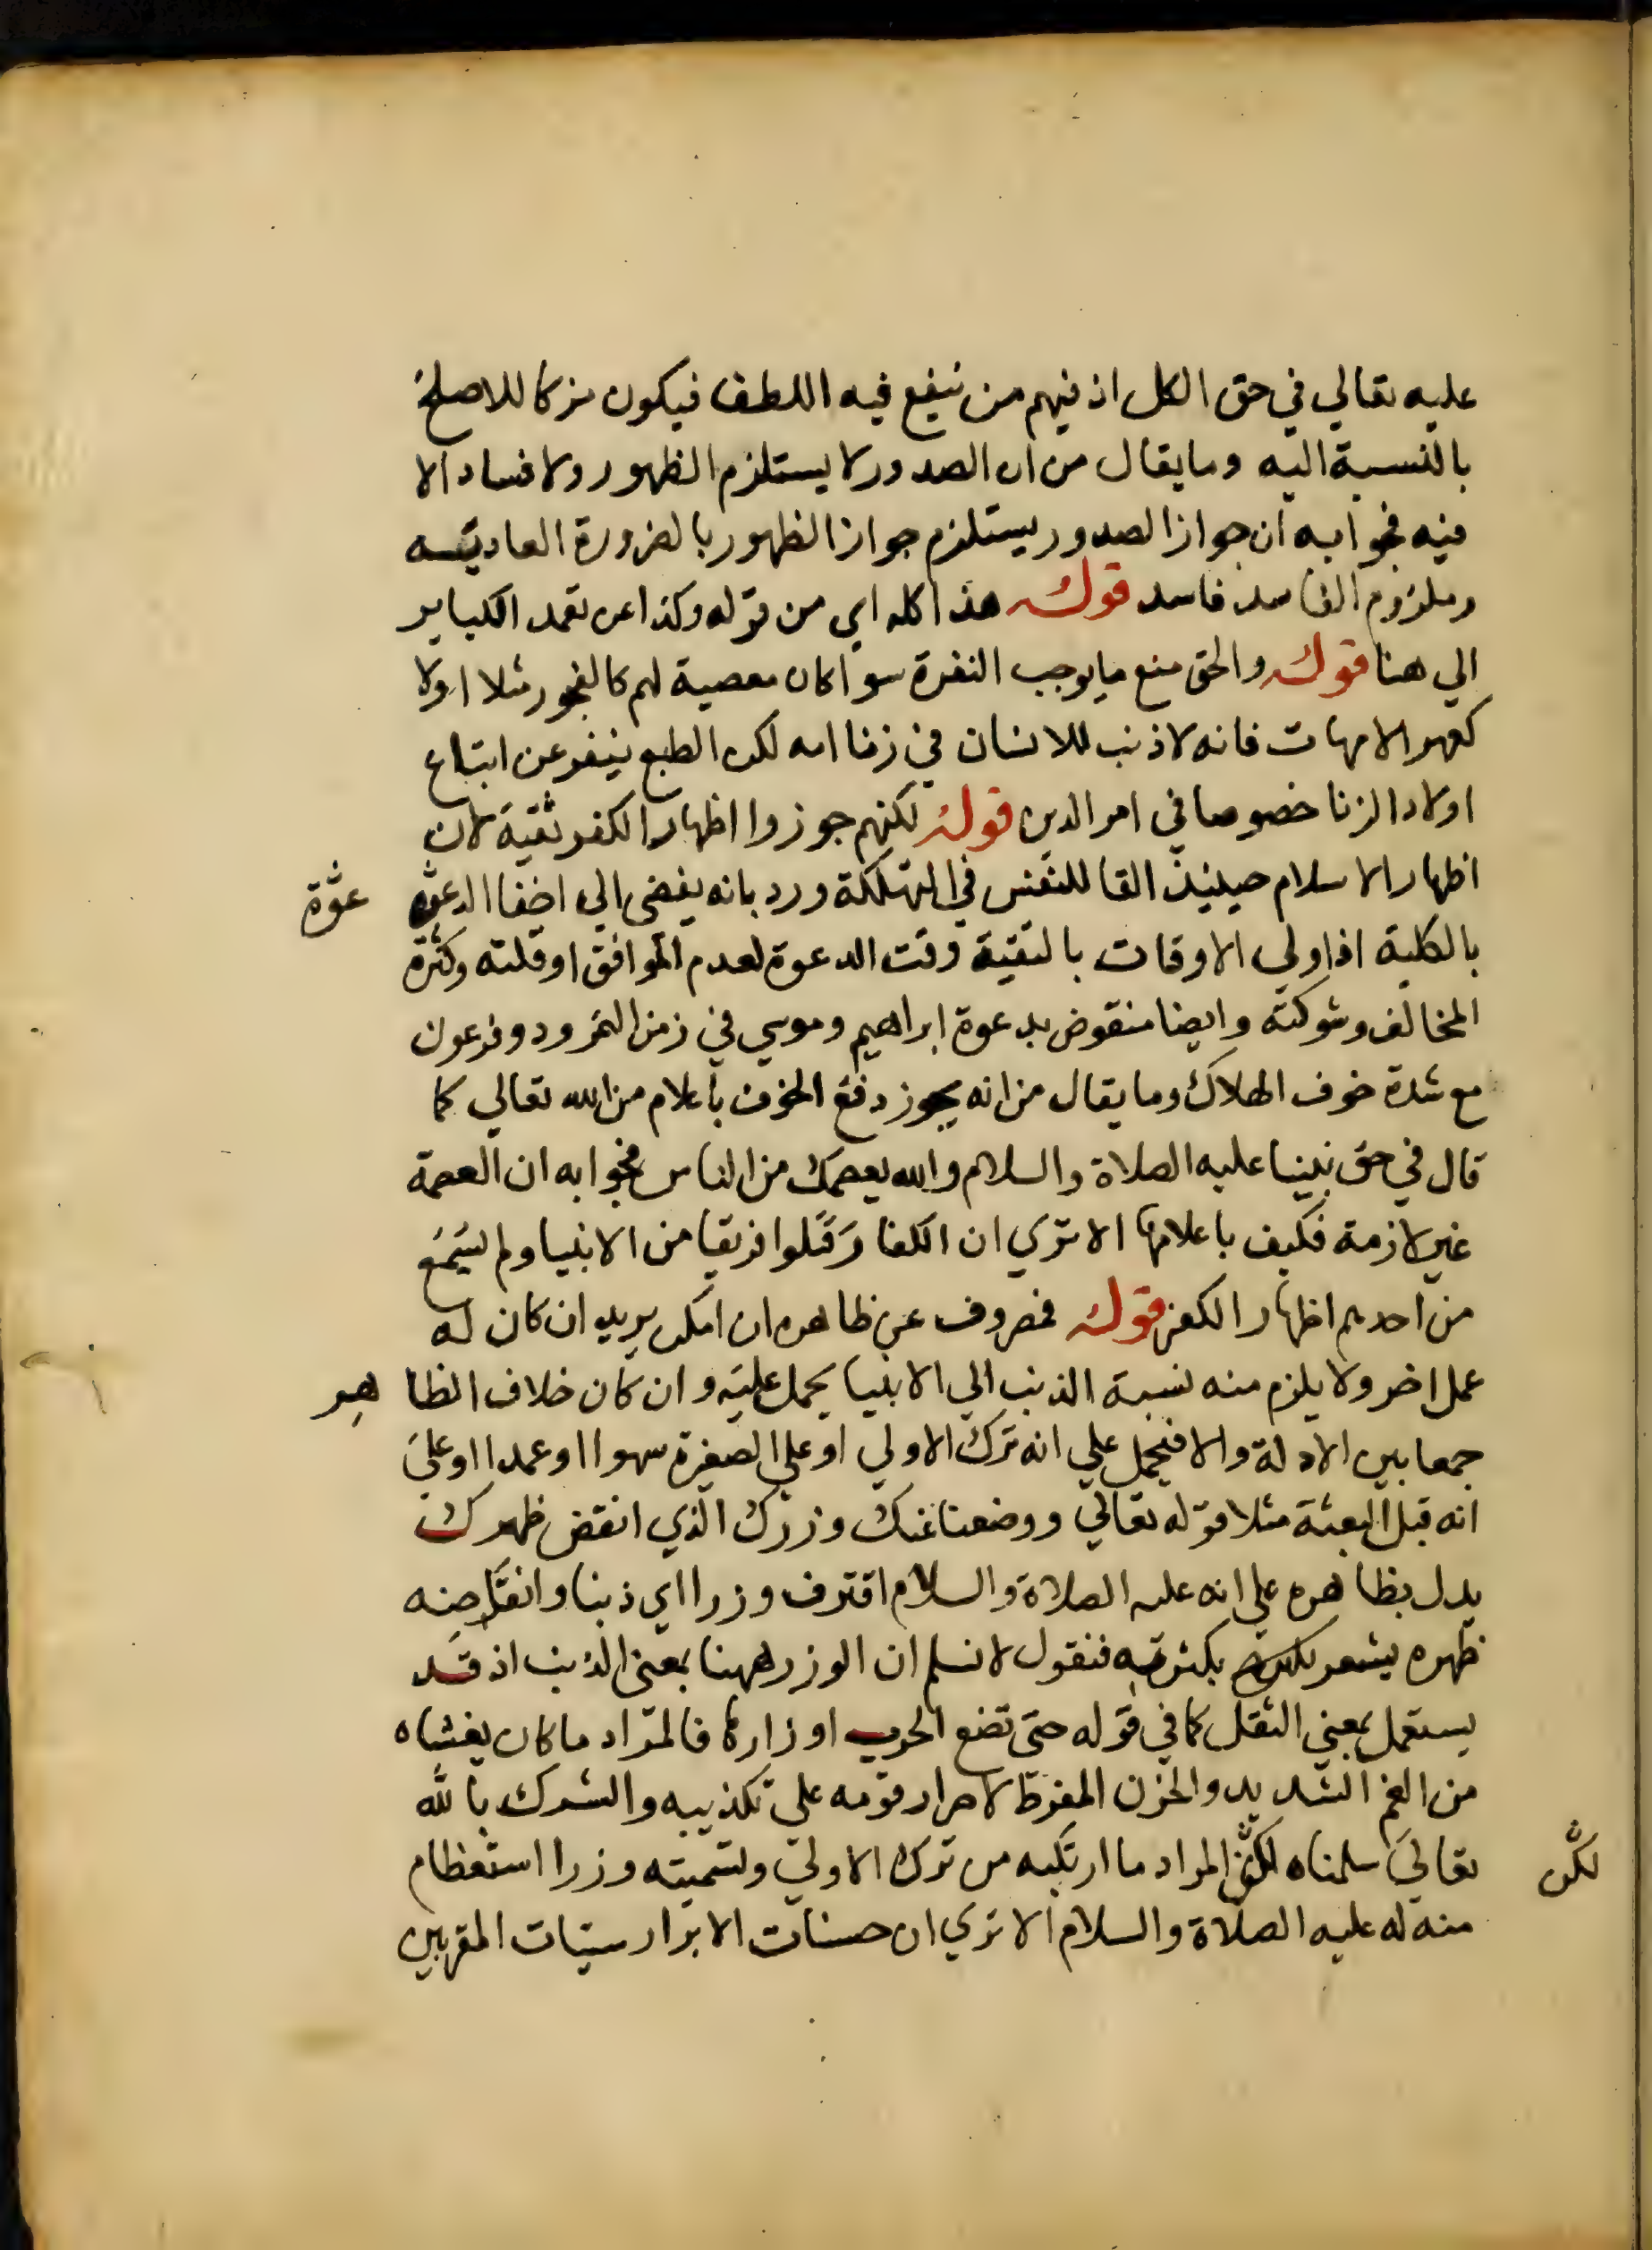 عليه تعالي في حق الكل اذ فيهم من ينفع فيه اللطف فيكون تركا للاصلح
بالنسبة اليه وما يقال من ان الصدور لا يستلزم الظهور ولا فساد الا
فيه فجوابه ان جواز الصدور يستلزم جواز الظهور بالضرورة العادية
وملزوم الفاسد فاسد قوله هذا كله اي من قوله وكذا عن تعمد الكباير
الي هنا قوله والحق منع ما يوجب النفرة سوا كان معصية لهم كالفجور مثلا او لا
كعهر الامهات فانه لا ذنب للانسان في زنا امه لكن الطبع ينفر عن اتباع
اولاد الزنا خصوصا في امر الدين قوله لكنهم جوزوا اظهار الكفر تقية لان
اظهار الاسلام حينيذ القا للنفس في التهلكة ورد بانه يفضى الي اخفا الدعوة
عوة
بالكلية اذ اولي الاوقات بالتقية وقت الدعوة لعدم الموافق او قلته وكثرة
المخالف وشوكته وايضا منقوض بدعوة ابراهيم وموسي في زمن النمرود وفرعون
مع شدة خوف الهلاك وما يقال من انه يجوز دفع الخوف باعلام من الله تعالي كما
قال في حق نبينا عليه الصلاة والسلام والله يعصمك من الناس فجوابه ان العصمة
غير لازمة فكيف باعلامها الا تري ان الكفار قتلوا فريقا من الانبيا ولم يسمع
من احدهم اظهار الكفر قوله فمصروف عن ظاهره ان امكن يريد ان كان له
محمل اخر ولا يلزم منه نسبة الذنب الي الانبيا يحمل عليه وان كان خلاف الظا هر
جمعا بين الادلة والا فيحمل علي انه ترك الاولي او علي الصغيرة سهوا او عمدا او علي
انه قبل البعثة مثلا قوله تعالي ووضعنا عنك وزرك الذي انقض ظهرك
يدل بظاهره علي انه عليه الصلاة والسلام اقترف وزرا اي ذنبا وانقاضه
ظهره يشعر بكثرته فنقول لا نسلم ان الوزر ههنا بمعني الذنب اذ قد
يستعمل بمعني الثقل كما في قوله حتي تضع الحرب اوزارها فالمراد ما كان يغشاه
من الغم الشديد والحزن المفرط لاصرار قومه علي تكذيبه والشرك بالله
تعالي سلمناه لكن المراد ما ارتكبه من ترك الاولي وتسميته وزرا استعظام
لكن
منه له عليه الصلاة والسلام الا تري ان حسنات الابرار سيئات المقربين